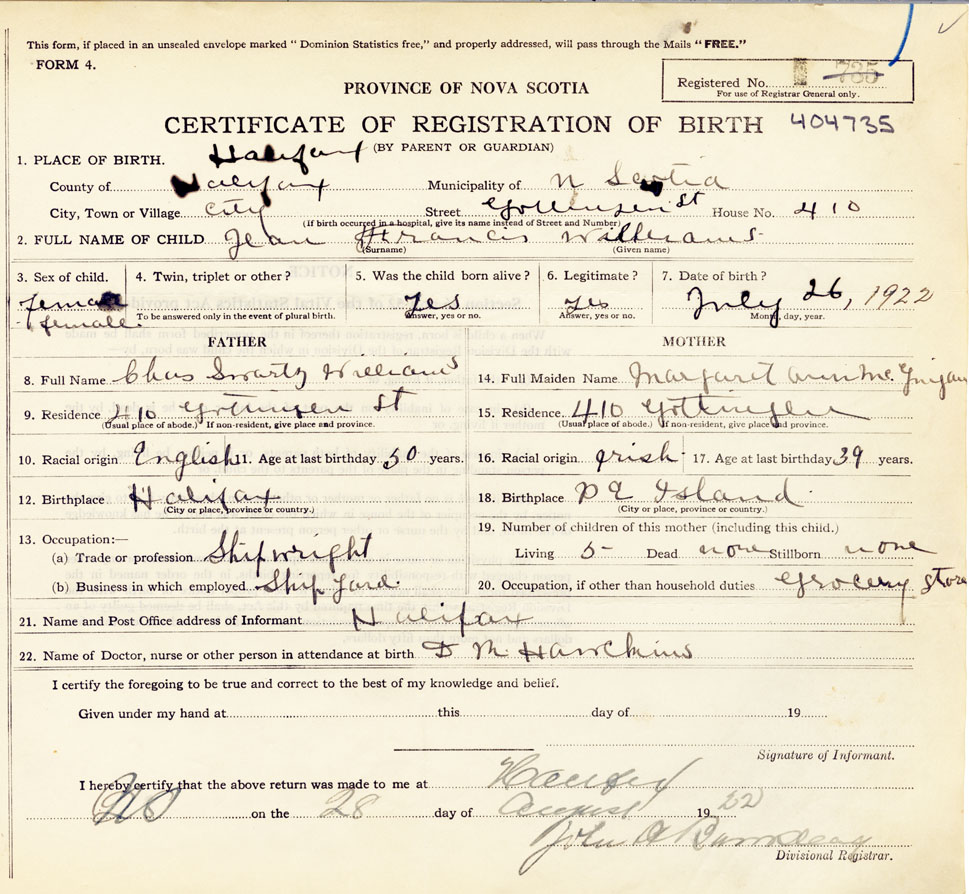 This form, if placed in an unsealed envelope marked "Dominion Statistics free," and properly addressed, will pass through the Mails "FREE."
FORM 4.
Registered No. 735
For use of Registrar General only.
PROVINCE OF NOVA SCOTIA
CERTIFICATE OF REGISTRATION OF BIRTH 404735
(BY PARENT OR GUARDIAN)
1. PLACE OF BIRTH. Halifax
County of Halifax Municipality of N Scotia
City, Town or Village City Street Gottingen St House No. 410
(If birth occurred in a hospital, give its name instead of Street and Number)
2. FULL NAME OF CHILD Jean Francis Williams
(Surname) (Given name)
3. Sex of child. 4. Twin, triplet or other? 5. Was the child born alive? 6. Legitimate? 7. Date of birth?
female Yes Yes July 26, 1922
female To be answered only in the event of plural birth. Answer, yes or no. Answer, yes or no. Month, day, year.
FATHER MOTHER
8. Full Name Chas Swartz Williams 14. Full Maiden Name Margaret Ann
9. Residence 410 Gottingen St 15. Residence. 410 Gottingen
(Usual place of abode.) If non-resident, give place and province. (Usual place of abode.) If non-resident, give place and province.
10. Racial origin English 11. Age at last birthday 50 years. 16. Racial origin Irish 17. Age at last birthday 39 years.
12. Birthplace Halifax 18. Birthplace P E Island
(City or place, province or country.) (City or place, province or country.)
13. Occupation:— 19. Number of children of this mother (including this child.)
(a) Trade or profession Shipwright Living 5 Dead none Stillborn none
(b) Business in which employed Ship Yard 20. Occupation, if other than household duties Grocery Store
21. Name and Post Office address of Informant Halifax
22. Name of Doctor, nurse or other person in attendance at birth D M Hawkins
I certify the foregoing to be true and correct to the best of my knowledge and belief.
Given under my hand at this day of 19
Signature of Informant.
I hereby certify that the above return was made to me at Halifax
on the 28 day of August 1922
John A
Divisional Registrar.